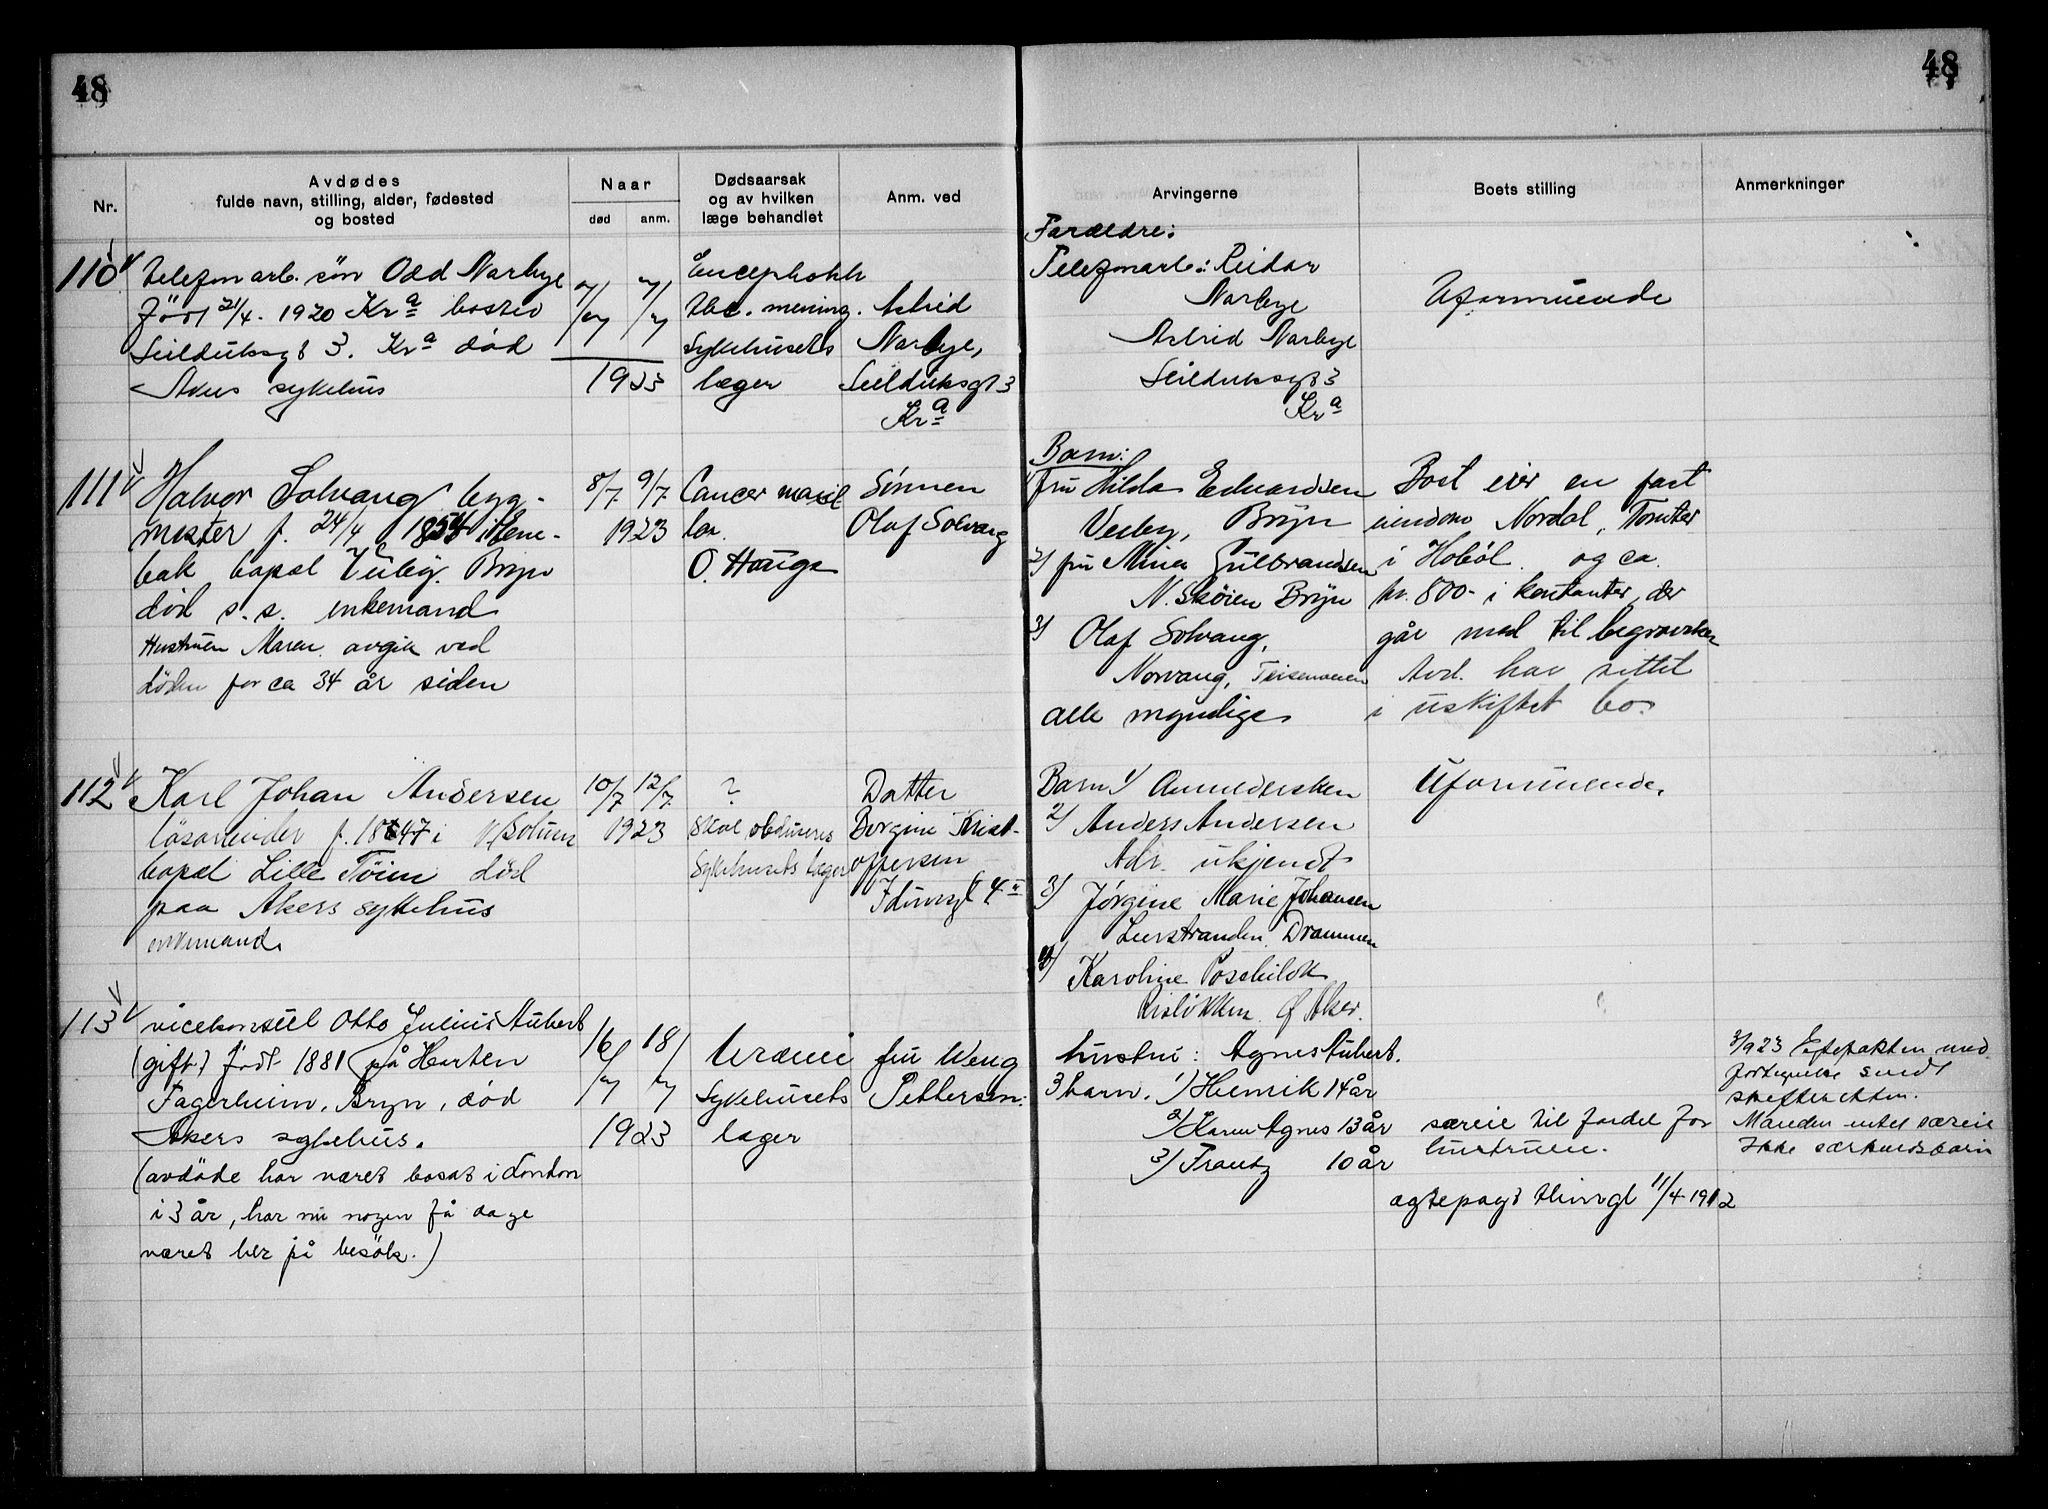 48
48
Nr.
Avdødes
fulde navn, stilling, alder, fødested
og bosted
Naar
død
anm.
Dødsaarsak
og av hvilken
læge behandlet
Anm. ved
Arvingerne
Boets stilling
Anmerkninger
110
telefonarb. søn Odd Narbye
født 21/4. 1920 Kra bosted
Seilduksgt 3. Kra død
Akers sykehus
7/7 7/7
1923
Encephalitt
tbc. mening.
Sykehusets
læger
Astrid
Narbye,
Seilduksgt 3
Kra
Forældre:
Telefonarb.: Reidar
Narbye
Astrid Narbye
Seilduksgt 3
Kra
Uformuende
111
Halvor Solvang byg-
mester f. 24/4 1854 i Ene-
bak bopæl Veiby. Bryn
død s.s. enkemand
Hustruen Maren avgik ved
døden for ca 34 år siden
8/7 9/7
1923
Cancer maxil
lar.
O. Hauge
Sønnen
Olaf Solvang
Barn:
fru Hilda Edvardsen
Veiby, Bryn
2) fru Mina Gulbrandsen
N. Skøien Bryn
3) Olaf Solvang,
Norvang, Teisenveien
alle myndige
Boet eier en fast
eiendom Nordal, Tomter
i Hobøl og ca.
kr. 800- i kontanter, der
går med til begravelsen
Avd. har sittet
i uskiftet bo.
112
Karl Johan Andersen
løsarbeider f. 1847 i N. Solum
bopæl Lille Tøien død
paa Akers sykehus
enkemand.
10/7 12/7
1923
?
Skal obduseres
Sykehusets læger
Datter
Bergine Krist-
offersen
Idunsgt 4 II
Barn 1) Anmeldersken
2) Anders Andersen
Adr. ukjendt
3) Jørgine Marie Johansen
Lierstranden. Drammen
4) Karoline Poschilok
Risløkken Ø Aker.
Uformuende.
113
vicekonsul Otto Julius Aubert
(gift) født 1881 på Horten
Fagerheim, Bryn, død
Akers sykehus.
(avdøde har været bosat i London
i 3 år, har nu nogen få dage
været her på besøk.)
16/7 18/7
1923
Uræmi
Sykehusets
læger
fru Weng
Pettersen.
hustru: Agnes Aubert.
3 barn. 1) Henrik 14 år
2) Karen Agnes 13 år
3) Frantz 10 år
særeie til fordel for
hustruen.
ægtepagt thingl 11/4 1912
3/9 23 Egtepakten med
påtegnelse sendt
skifteretten.
Manden intet særeie
Ikke særkuldsbarn